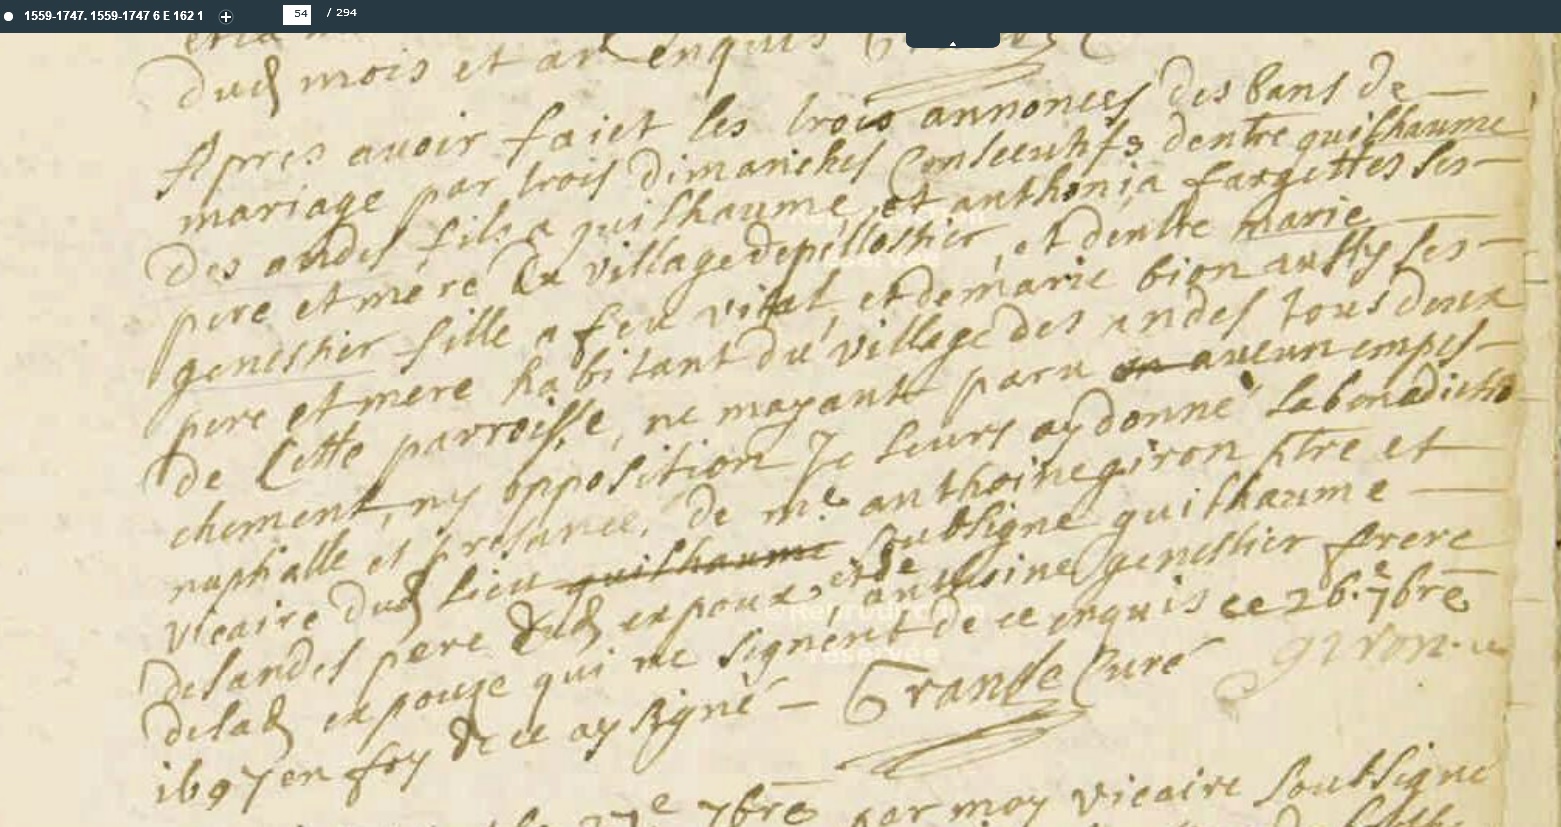 1559-1747. 1559-1747 6 E 162 1 54 / 294
dud mois et an enquis
Apres avoir faict les trois annonces des bans de
mariage par trois dimanches Consecutifs dentre guilhaume
des andes fils a guilhaume, et anthonia fargettes ses
pere et mere du village de pellostier, et dentre marie
genestier fille a feu vital, et de marie bion aussy ses
pere et mere habitant du village des andes tous deux
de Cette parroisse, ne mayant paru aucun empes-
chement, ny opposition Je leurs ay donné la benedictio
nuptialle et presance, de me. anthoine giron ptre et
vicaire dud lieu guilhaume soubsigne guilhaume
desandes pere dud expoux, et de anthoine genestier frere
delad expouze qui ne signent de ce enquis ce 26.e 7bre
1697 en foy de ce ay signé Grande Curé giron
27e 7bre par moy vicaire soubsigne
© Reproduction
réservée